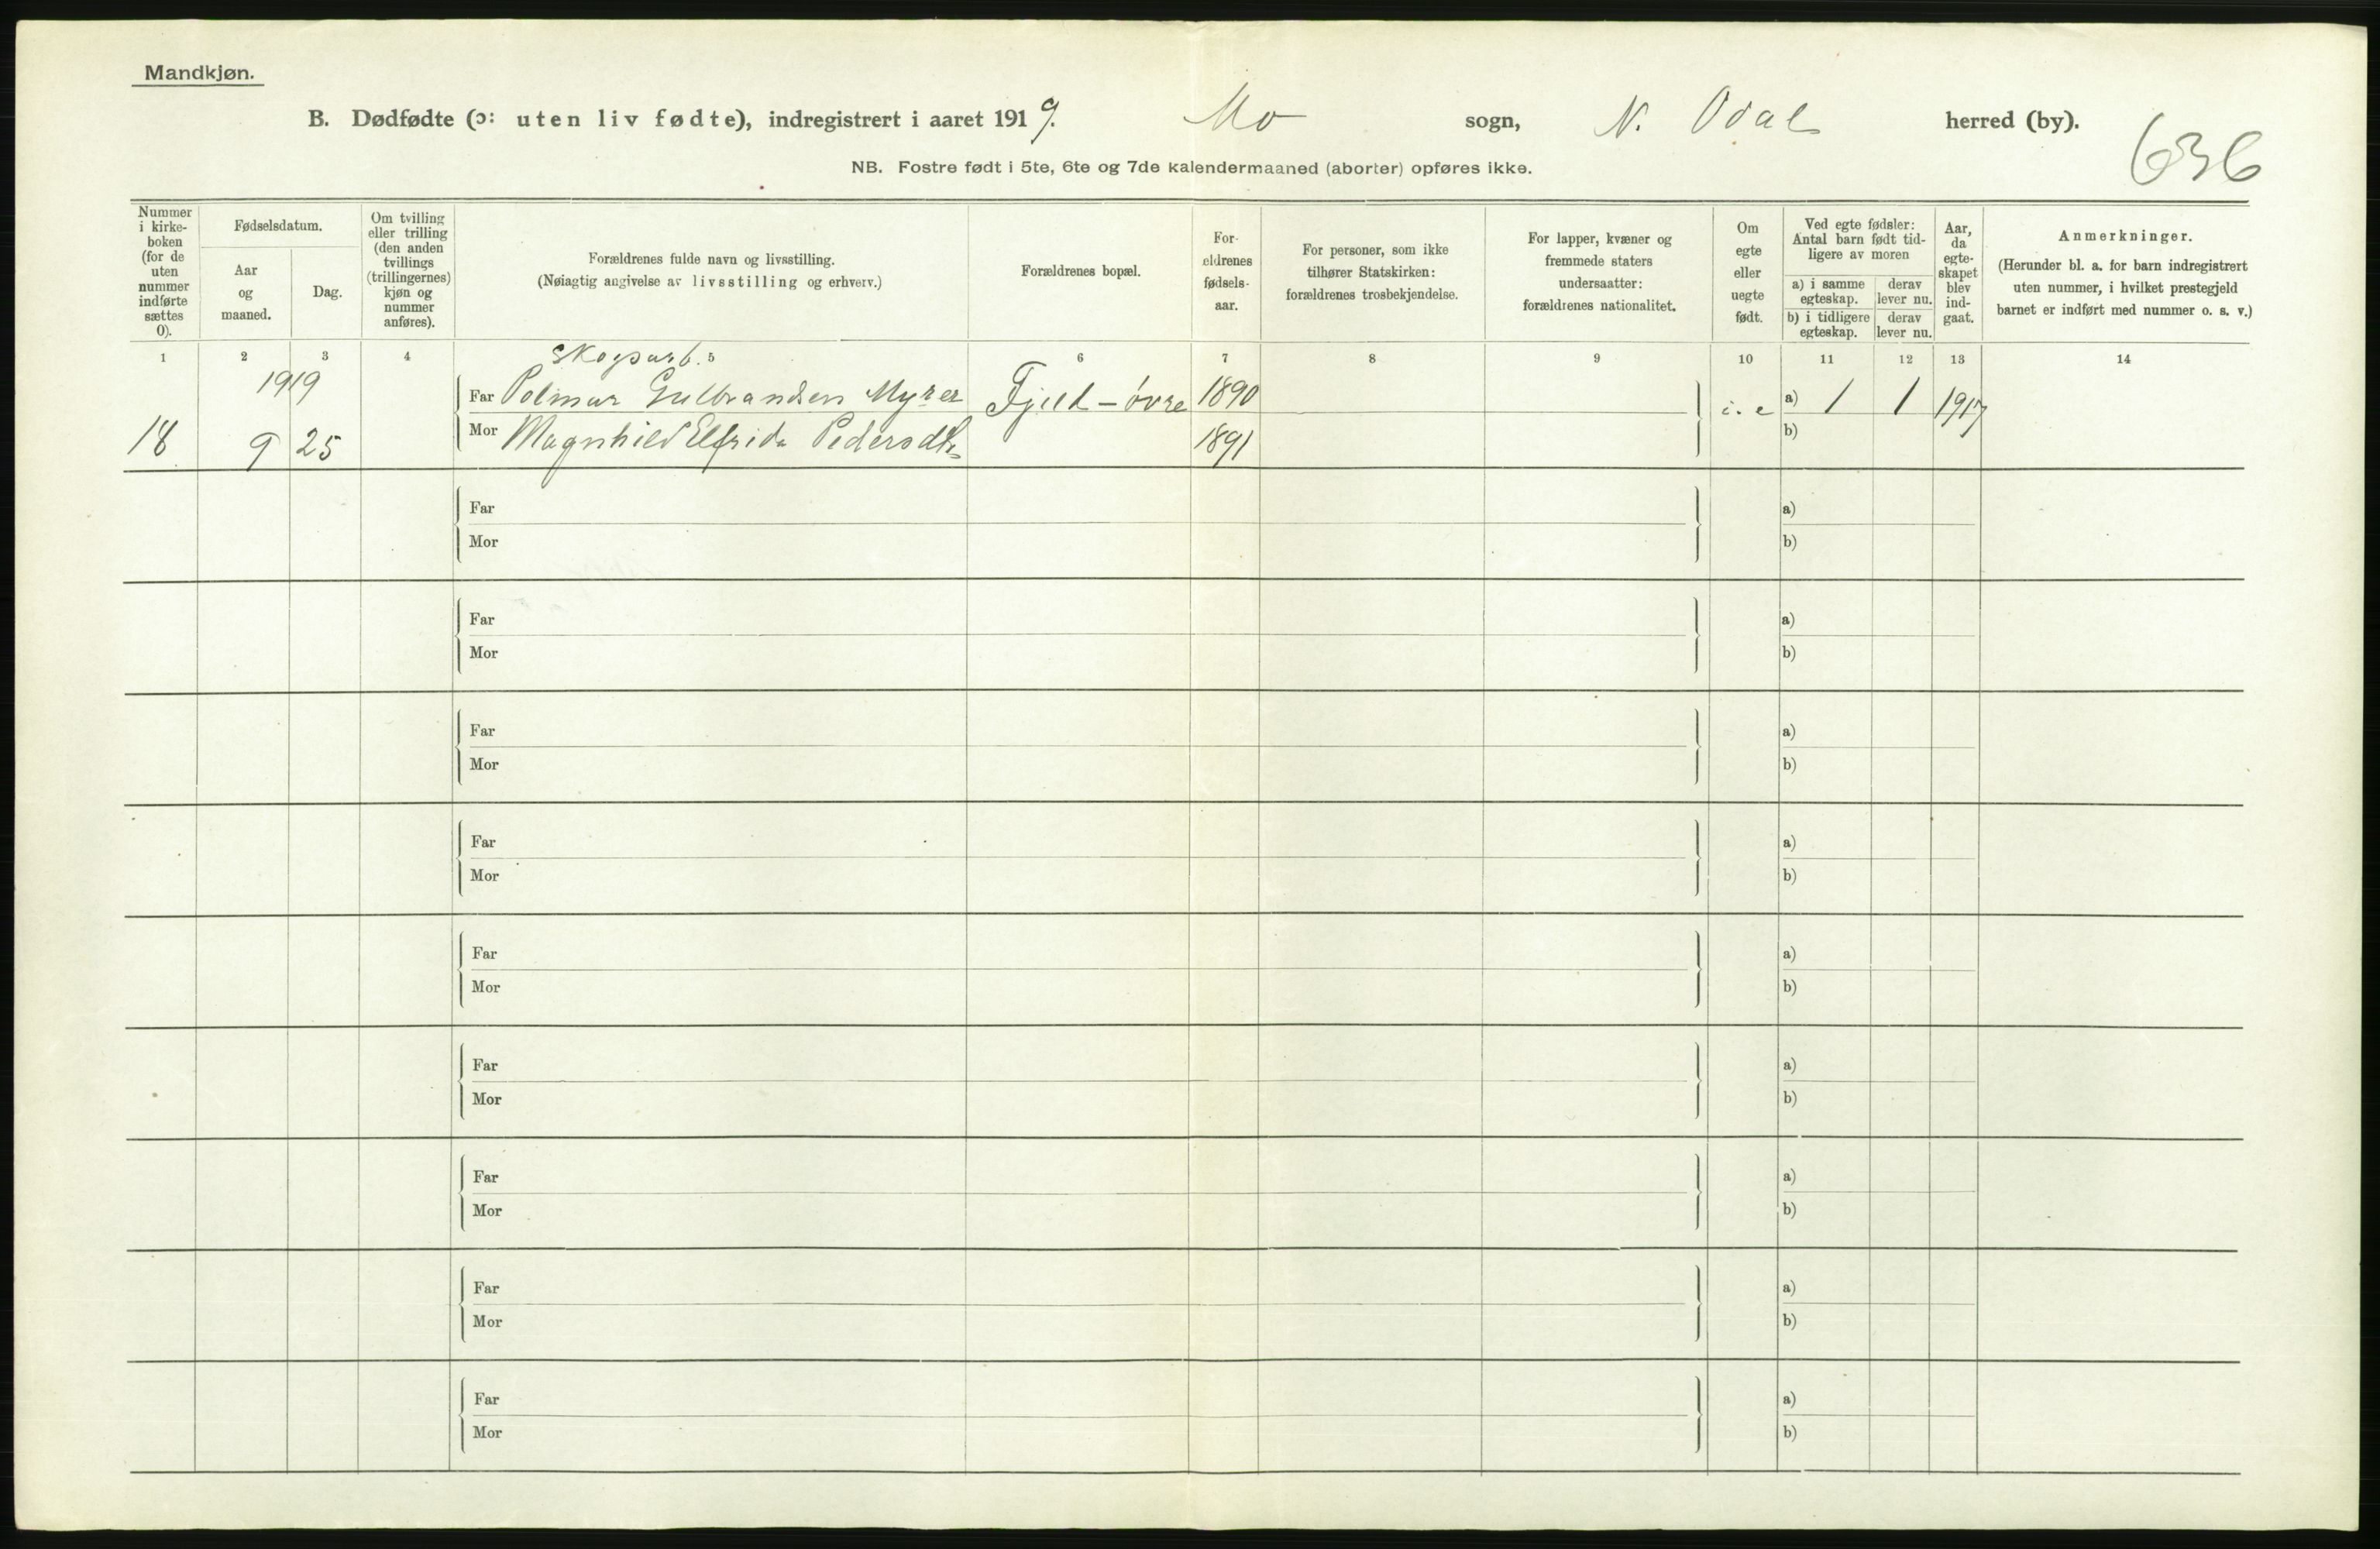 Mandkjøn.
B. Dødfødte (ɔ: uten liv fødte), indregistrert i aaret 1919. Mo sogn, N. Odal herred (by).
636
NB. Fostre født i 5te, 6te og 7de kalendermaaned (aborter) opføres ikke.
Nummer i kirke-boken (for de uten nummer indførte sættes 0).
Fødselsdatum.
Aar og maaned.
Dag.
Om tvilling eller trilling (den anden tvillings (trillingernes) kjøn og nummer anføres).
Forældrenes fulde navn og livsstilling.
(Nøiagtig angivelse av livsstilling og erhverv.)
Forældrenes bopæl.
For-eldrenes fødsels-aar.
For personer, som ikke tilhører Statskirken: forældrenes trosbekjendelse.
For lapper, kvæner og fremmede staters undersaatter: forældrenes nationalitet.
Om egte eller uegte født.
Ved egte fødsler: Antal barn født tid-ligere av moren
a) i samme egteskap.
derav lever nu.
b) i tidligere egteskap.
derav lever nu.
Aar, da egte-skapet blev ind-gaat.
Anmerkninger.
(Herunder bl. a. for barn indregistrert uten nummer, i hvilket prestegjeld barnet er indført med nummer o. s. v.)
1 2 3 4 5 6 7 8 9 10 11 12 13 14
Skogsarb.
1919
Far Polmar Gulbrandsen Myrer Fjeld-øvre 1890 i. e a) 1 1 1917
18 9 25 Mor Magnhild Elfrida Pedersdtr 1891 b)
Far a)
Mor b)
Far a)
Mor b)
Far a)
Mor b)
Far a)
Mor b)
Far a)
Mor b)
Far a)
Mor b)
Far a)
Mor b)
Far a)
Mor b)
Far a)
Mor b)